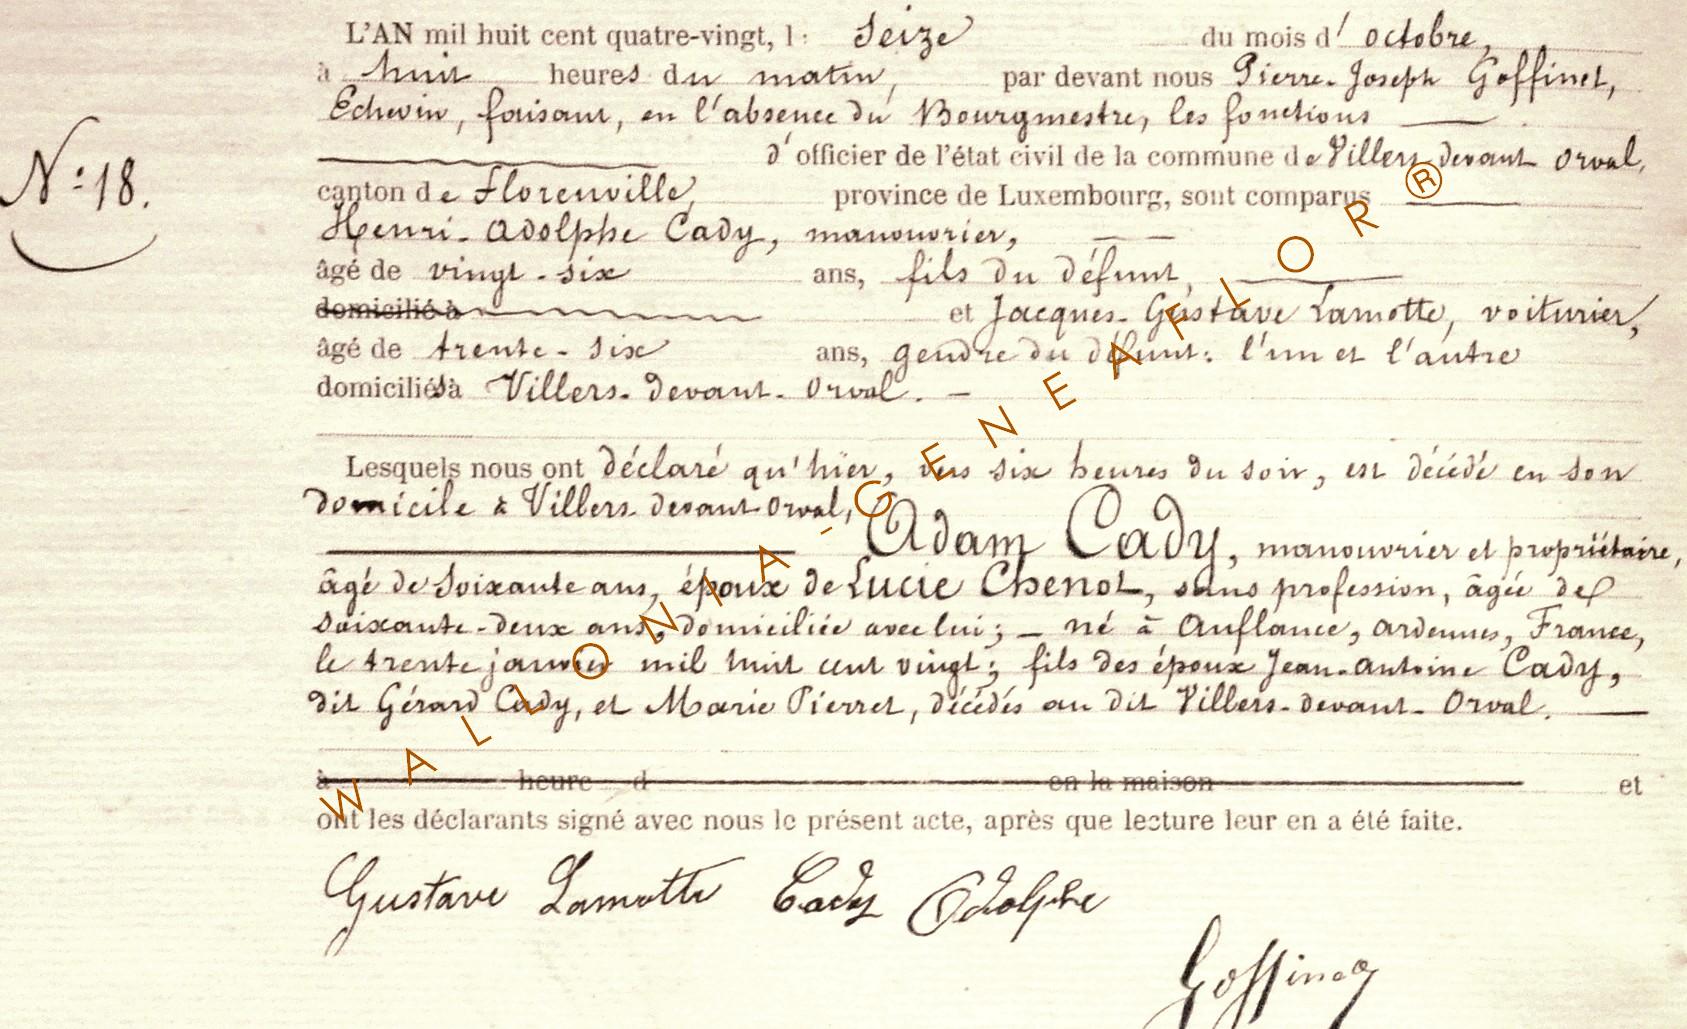 L'AN mil huit cent quatre-vingt, l: Seize du mois d' octobre,
à huit heures du matin, par devant nous Pierre-Joseph Goffinet,
Echevin, faisant, en l'absence du Bourgmestre, les fonctions
d'officier de l'état civil de la commune de Villers devant Orval,
N:18.
canton de Florenville, province de Luxembourg, sont comparus
Henri-Adolphe Cady, manouvrier,
âgé de vingt-six ans, fils du défunt,
domicilié à et Jacques-Gustave Lamotte, voiturier,
âgé de trente-six ans, gendre du défunt: l'un et l'autre
domiciliés à Villers-devant-Orval. -
Lesquels nous ont déclaré qu'hier, vers six heures du soir, est décédé en son
domicile à Villers devant Orval,
Adam Cady, manouvrier et propriétaire,
âgé de Soixante ans, époux de Lucie Chenot, sans profession, âgée de
soixante-deux ans, domiciliée avec lui; - né à Auflance, ardennes, France,
le trente janvier mil huit cent vingt; fils des époux Jean-Antoine Cady,
dit Gérard Cady, et Marie Pierret, décédés au dit Villers-devant-Orval.
à heure d en la maison et
ont les déclarants signé avec nous le présent acte, après que lecture leur en a été faite.
Gustave Lamotte Cady Adolphe
Goffinet
WALLONIA-GENEAFLOR®